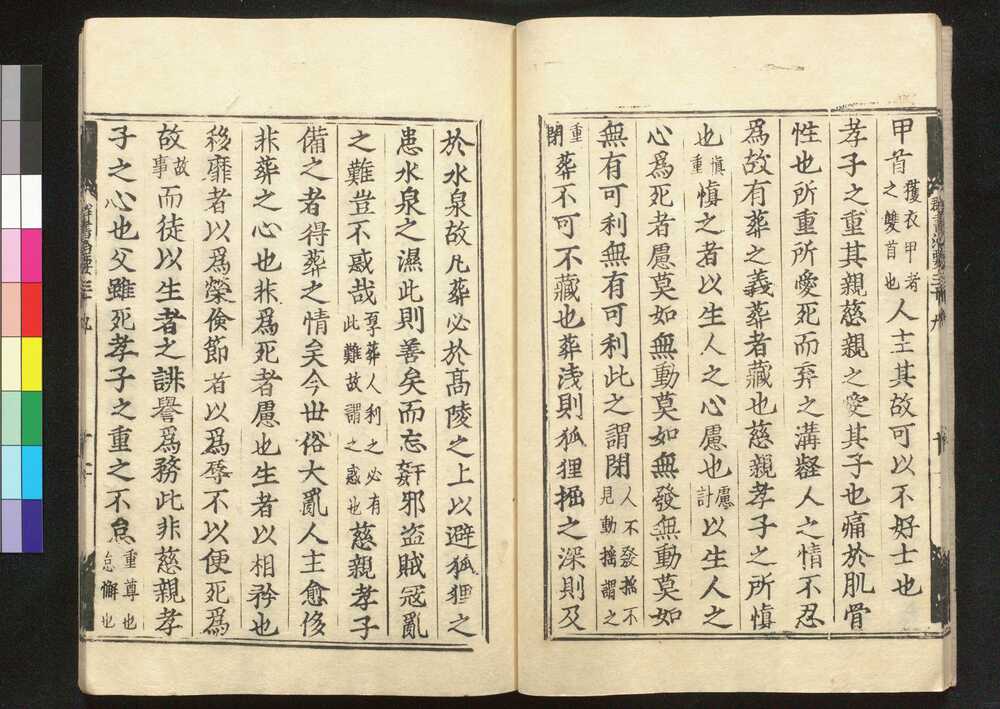 甲首獲衣甲者之雙首也人主其故可以不好士也
孝子之重其親慈親之愛其子也痛於肌骨
性也所重所愛死而弃之溝壑人之情不忍
爲故有葬之義葬者藏也慈親孝子之所愼
也愼重愼之者以生人之心慮也慮計以生人之
心爲死者慮莫如無動莫如無發無動莫如
無有可利無有可利此之謂閉人不發掘不見動搖謂之
重閉葬不可不藏也葬淺則狐狸掘之深則及
於水泉故凡葬必於髙陵之上以避狐狸之
患水泉之濕此則善矣而忘姧邪盗賊冦亂
之難豈不惑哉厚葬人利之必有此難故謂之惑也慈親孝子
備之者得葬之情矣今世俗大亂人主愈侈
非葬之心也非爲死者慮也生者以相矜也
侈靡者以爲榮儉節者以爲辱不以便死爲
故故事而徒以生者之誹譽爲務此非慈親孝
子之心也父雖死孝子之重之不怠重尊也怠懈也
群書治要三十九